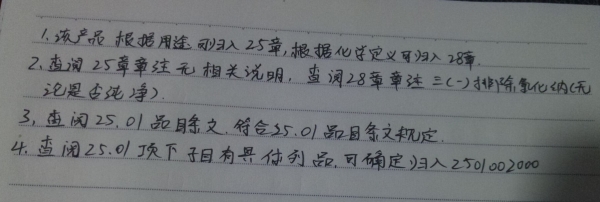 1.该产品 根据用途可归入25章,根据化学定义可归入28章.
2.查阅25章章注无相关说明, 查阅28章章注三(一)排除氯化钠(无
论是否纯净).
3.查阅25.01品目条文.符合25.01品目条文规定.
4.查阅25.01项下子目有具体列品,可确定归入2501002000